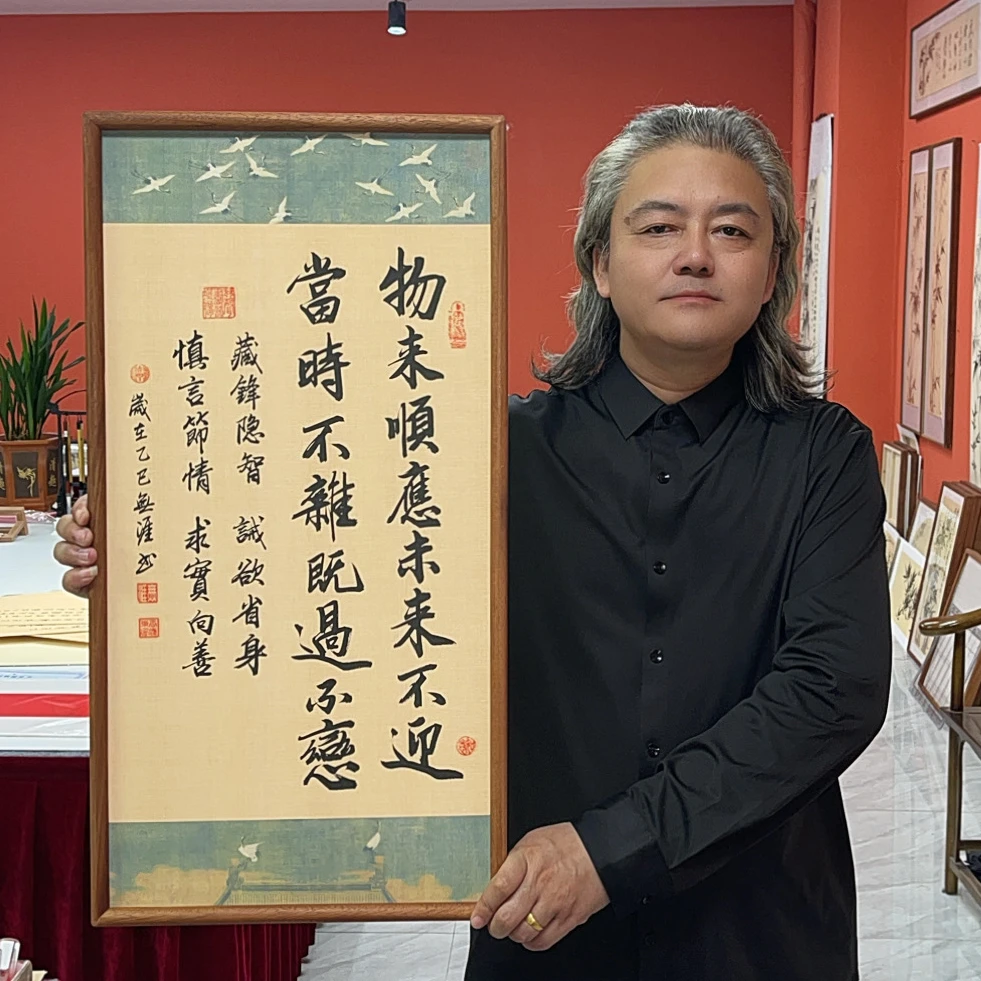 物来順應未来不迎
當時不雜既過不戀
藏鋒隐智 誡欲省身
慎言節情 求實向善
歲在乙巳無涯书